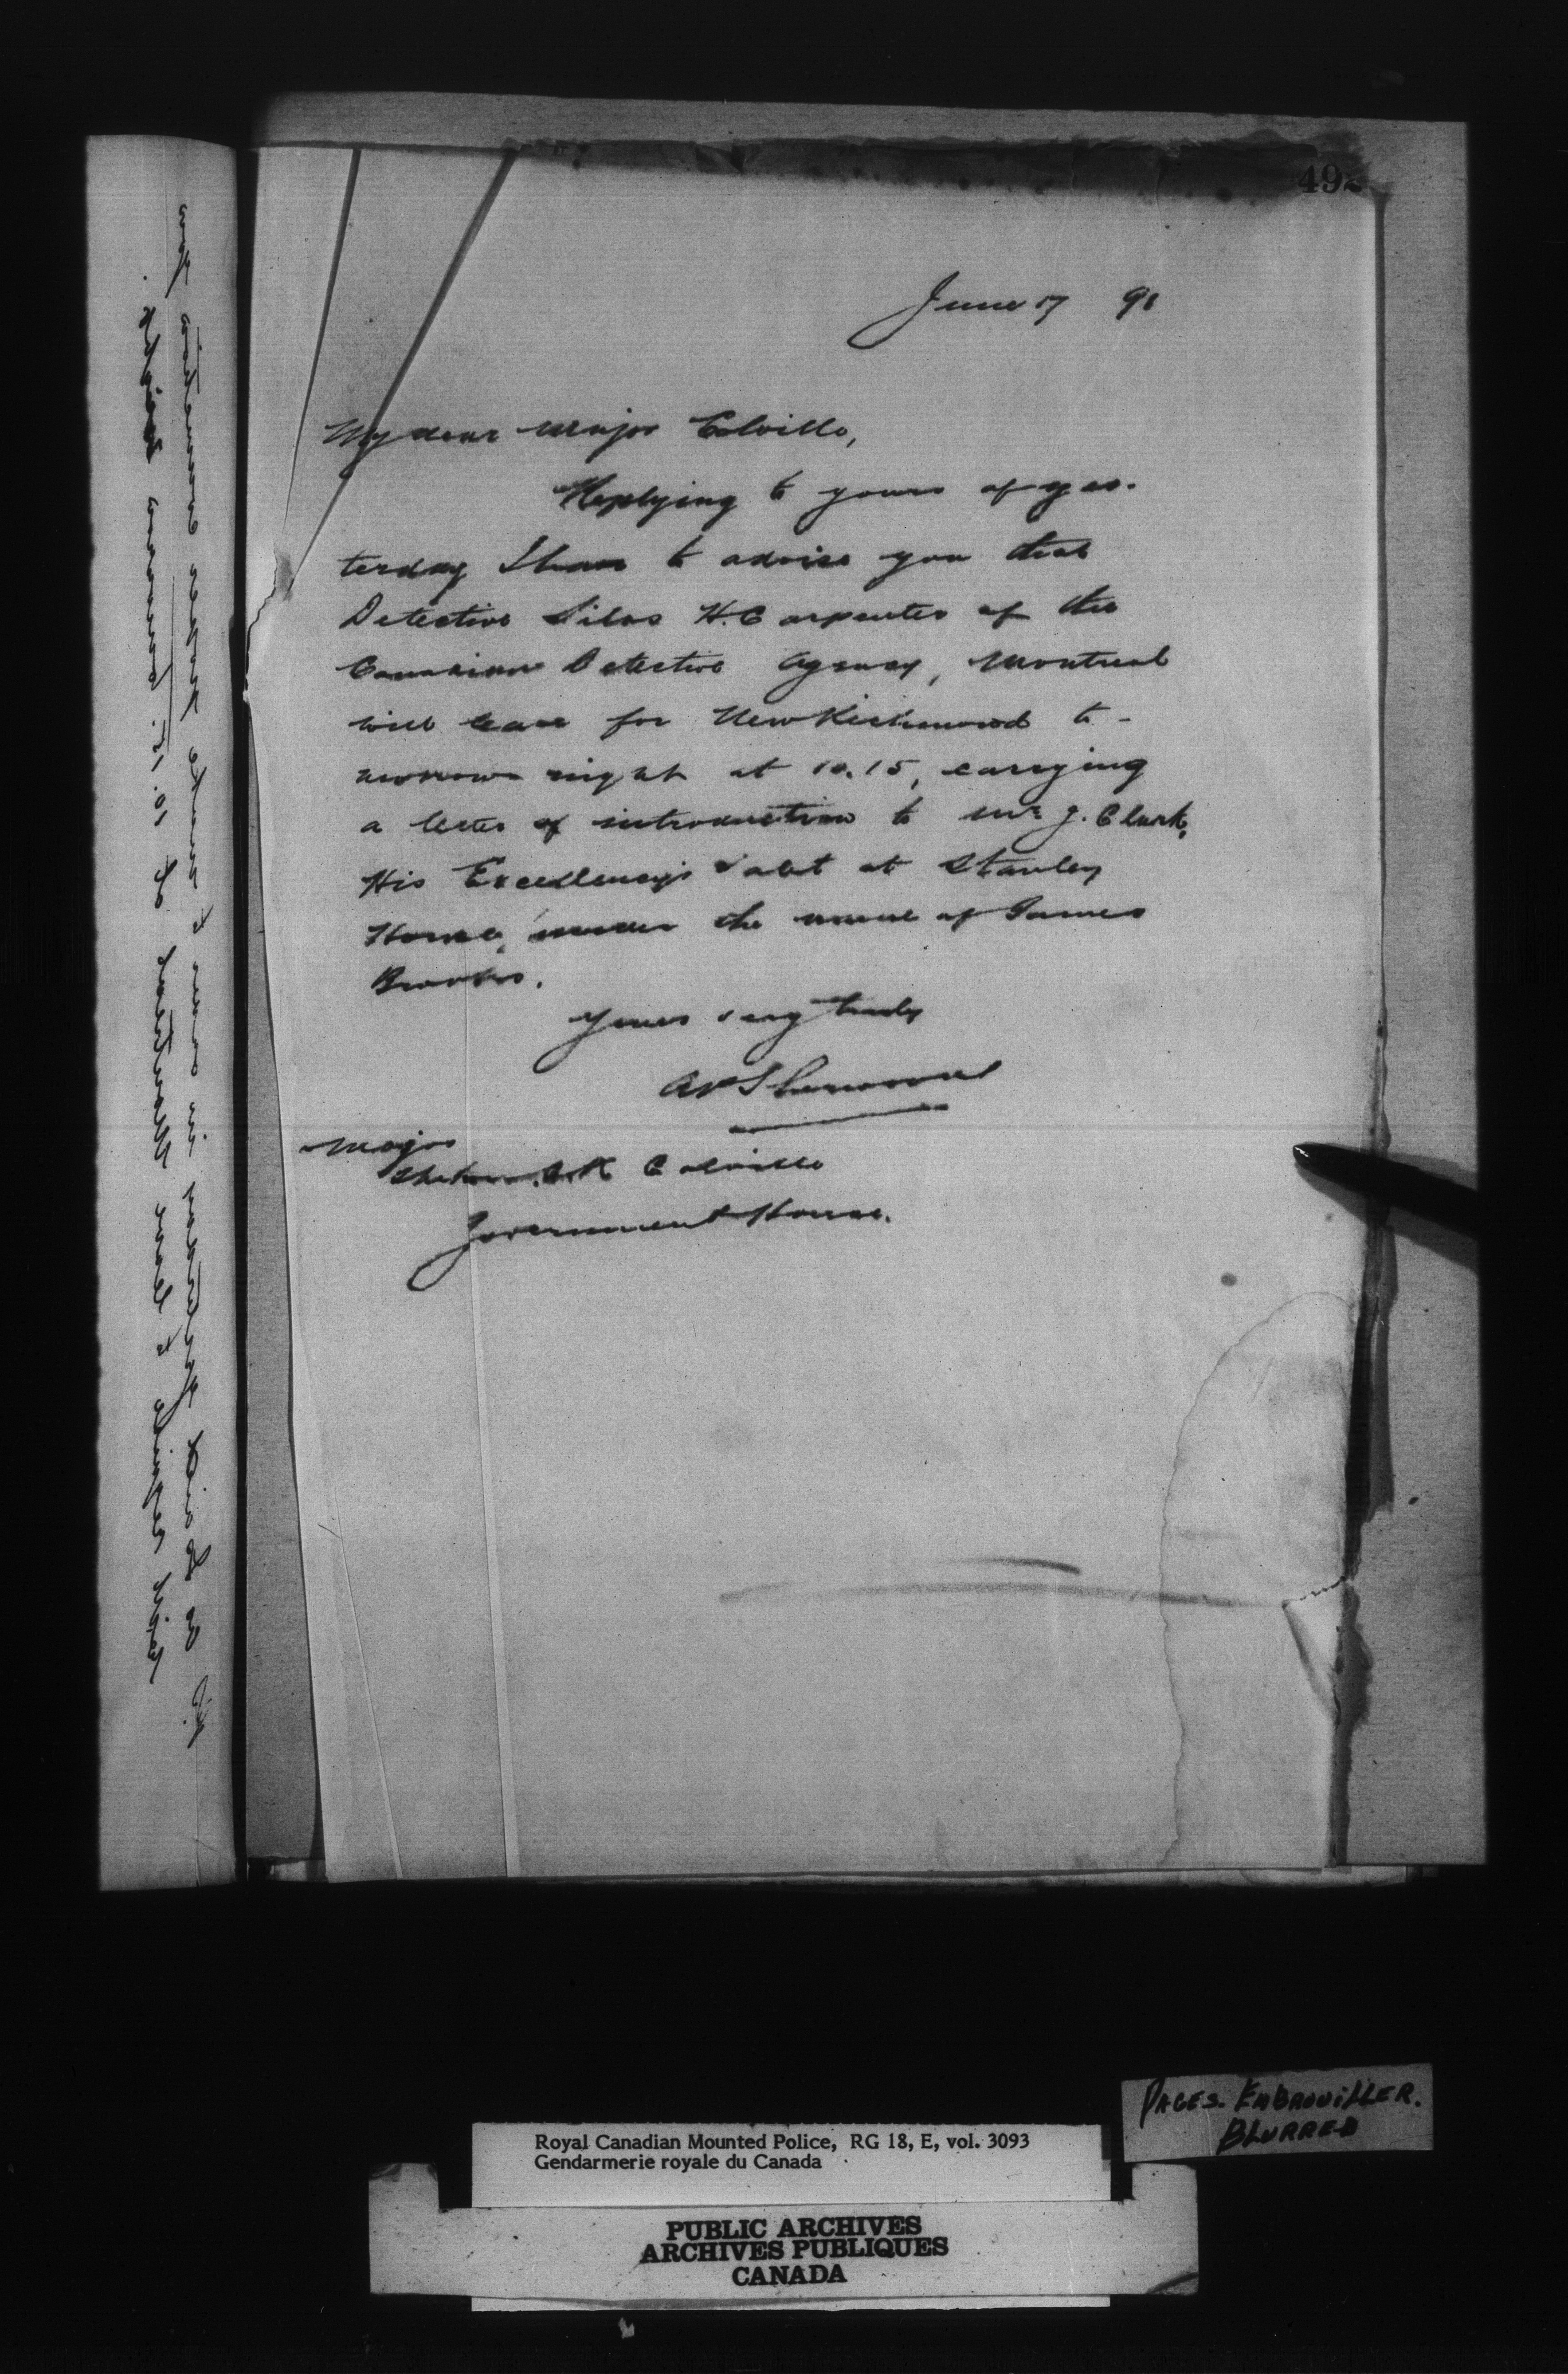 492
June 17 91
My dear Major Colville,
Replying to yours of yes-
terday I have to advise you that
Detective Silas H. Carpenter of the
Canadian Detective Agency, Montreal
will leave for New Richmond to-
morrow night at 10.15, carrying
a letter of introduction to Mr J. Clark,
His Excellency's valet at Stanley
House, under the name of James
Brooks.
Yours very truly
AP Sherwood
Major
The Hon. C. R. Colville
Government House.
PAGES. EMBROUILLER.
BLURRED
Royal Canadian Mounted Police, RG 18, E, vol. 3093
Gendarmerie royale du Canada
PUBLIC ARCHIVES
ARCHIVES PUBLIQUES
CANADA